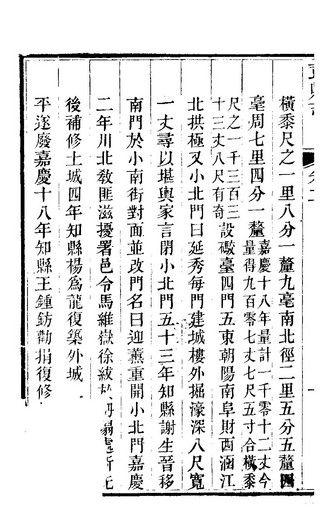 橫黍尺之一里八分一釐九毫南北徑二里五分五釐四
毫周七里四分一釐嘉慶十八年量計一千零十二丈今
量得九百零七丈七尺五寸合橫黍
尺之一千三百三
十三丈八尺有奇設敵臺四門五東朝陽南阜財西涵江
北拱極又小北門曰延秀每門建城樓外掘濠深八尺寬
一丈尋以堪輿家言閉小北門五十三年知縣謝生晉移
南門於小南街對面並改門名曰迎薰重開小北門嘉慶
二年川北教匪滋擾署邑令馬維嶽徐紱
後補修土城四年知縣楊爲龍復築外城
平遂廢嘉慶十八年知縣王鍾鈁勸捐復修